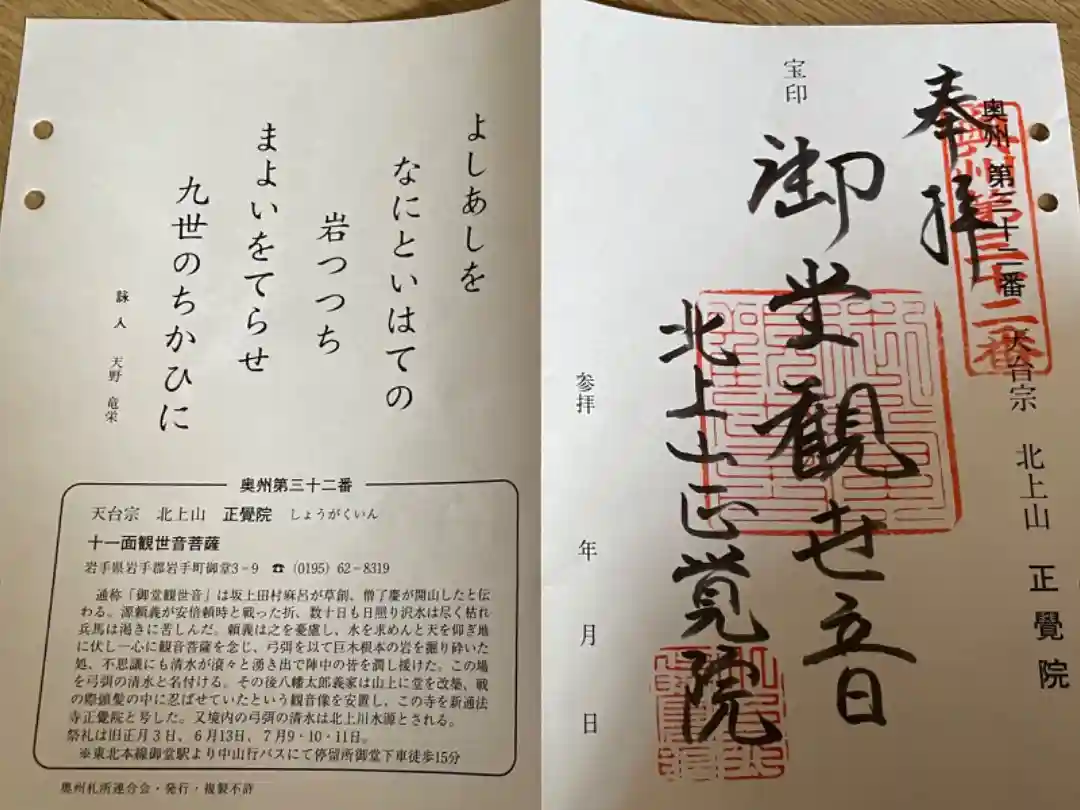 奥州 第三十二番 天台宗 北上山 正覺院
奥州第三十二番
奉拝
宝印
御堂観世音
北上山正覚院
参拝 年 月 日
よしあしを
なにといはての
岩つつち
まよいをてらせ
九世のちかひに
詠人 天野 竜栄
奥州第三十二番
天台宗 北上山 正覺院 しょうがくいん
十一面観世音菩薩
岩手県岩手郡岩手町御堂3−9 ☎ (0195) 62−8319
通称「御堂観世音」は坂上田村麻呂が草創、僧了慶が開山したと伝
わる。源頼義が安倍頼時と戦った折、数十日も日照り沢水は尽く枯れ
兵馬は渇きに苦しんだ。頼義は之を憂慮し、水を求めんと天を仰ぎ地
に伏し一心に観音菩薩を念じ、弓弭を以て巨木根本の岩を掘り砕いた
処、不思議にも清水が滾々と湧き出で陣中の皆を潤し援けた。この場
を弓弭の清水と名付ける。その後八幡太郎義家は山上に堂を改築、戦
の際頭髪の中に忍ばせていたという観音像を安置し、この寺を新通法
寺正覺院と号した。又境内の弓弭の清水は北上川水源とされる。
祭礼は旧正月3日、6月13日、7月9・10・11日。
※東北本線御堂駅より中山行バスにて停留所御堂下車徒歩15分
奥州札所連合会・発行・複製不許